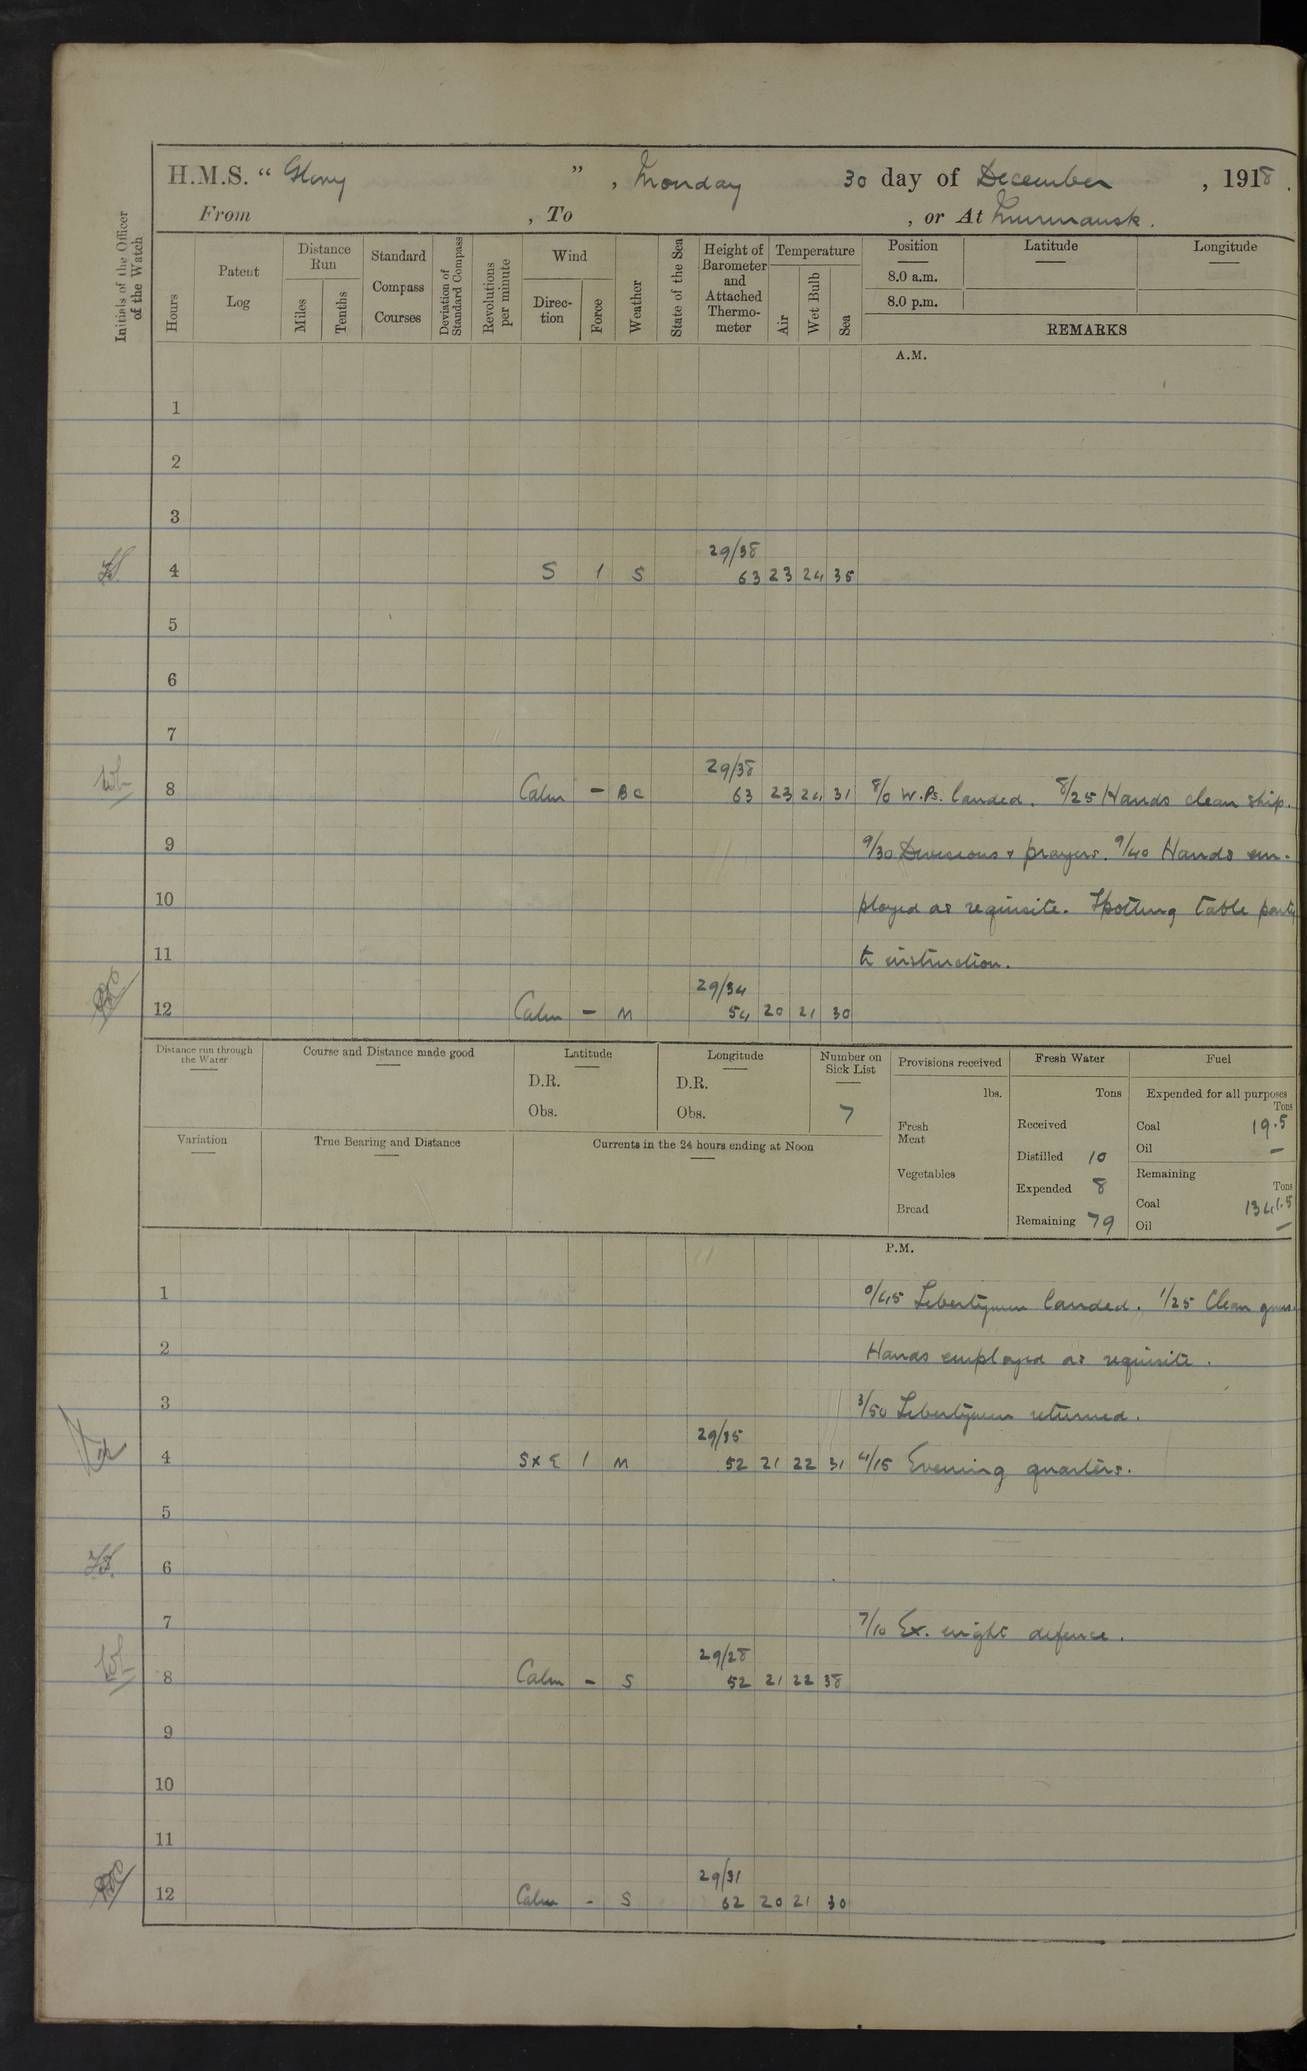 H.M.S. " Glory " , Monday 30 day of December , 1918 .
From , To , or At Murmansk.
Initials of the Officer of the Watch
Hours
Patent Log
Distance Run
Miles
Tenths
Standard Compass Courses
Deviation of Standard Compass
Revolutions per minute
Wind
Direc-tion
Force
Weather
State of the Sea
Height of Barometer and Attached Thermo-meter
Temperature
Air
Wet Bulb
Sea
Position
Latitude
Longitude
8.0 a.m.
8.0 p.m.
REMARKS
A.M.
1
2
3
29/38
4 S 1 S 63 23 24 35
5
6
7
29/38
8 Calm - BC 63 23 24 31 8/0 W.Ps. landed. 8/25 Hands clean ship.
9 9/30 Divisions & prayers. 9/40 Hands em-
10 ployed as requisite. Spotting table party
11 to instruction.
29/34
12 Calm - M 54 20 21 30
Distance run through the Water
Course and Distance made good
Latitude
D.R.
Obs.
Longitude
D.R.
Obs.
Number on Sick List
7
Variation
True Bearing and Distance
Currents in the 24 hours ending at Noon
Provisions received
lbs.
Fresh Meat
Vegetables
Bread
Fresh Water
Tons
Received
Distilled 10
Expended 8
Remaining 79
Fuel
Expended for all purposes
Tons
Coal 19.5
Oil -
Remaining
Tons
Coal 1341.5
Oil -
P.M.
1 0/45 Libertymen landed. 1/25 Clean guns.
2 Hands employed as requisite.
3 3/50 Libertymen returned.
29/35
4 SxE 1 M 52 21 22 31 4/15 Evening quarters.
5
6
7 7/10 Ex. night defence.
29/28
8 Calm - S 52 21 22 38
9
10
11
29/31
12 Calm - S 62 20 21 30